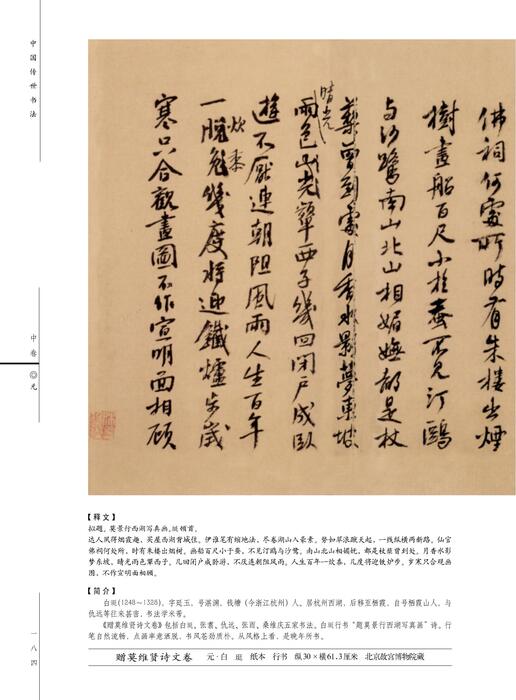 中国传世书法
中卷◎元
一八四
佛祠何處所時有朱樓出煙
樹畫船百尺小於蚕不見汀鷗
与沙鷺南山北山相媚嫵都是杖
藜曾到處月香水影夢東坡
晴光
雨色山光顰西子幾回閉戶成臥
遊不厭連朝阻風雨人生百年
炊黍
幾度將迎鐵爐步歲
寒只合觀畫圖不作宣明面相顧
【释文】
拟题。莫景行西湖写真画。珽顿首。
达人夙得烟霞趣,买屋西湖背城住。伊谁笔有缩地法,尽卷湖山入豪素。势如草浪蹴天起,一线纵横两新路。仙官
佛祠何处所,时有朱楼出烟树。画船百尺小于蚕,不见汀鸥与沙鹭。南山北山相媚妩,都是杖藜曾到处。月香水影
梦东坡。晴光雨色颦西子。几回闭户成卧游,不厌连朝阻风雨。人生百年一炊黍,几度将迎铁炉步。岁寒只合观画
图,不作宣明面相顾。
【简介】
白珽(1248~1328),字廷玉,号湛渊,钱塘(今浙江杭州)人。居杭州西湖,后移至栖霞,自号栖霞山人,与
仇远等往来甚密,书法学米芾。
《赠莫维贤诗文卷》包括白珽、张翥、仇远、张雨、桑维庆五家书法。白珽行书“题莫景行西湖写真画”诗。行
笔自然流畅,点画率意洒脱,书风苍劲质朴。从风格上看,是晚年所书。
赠莫维贤诗文卷 元·白珽 纸本 行书 纵30×横61.3厘米 北京故宫博物院藏